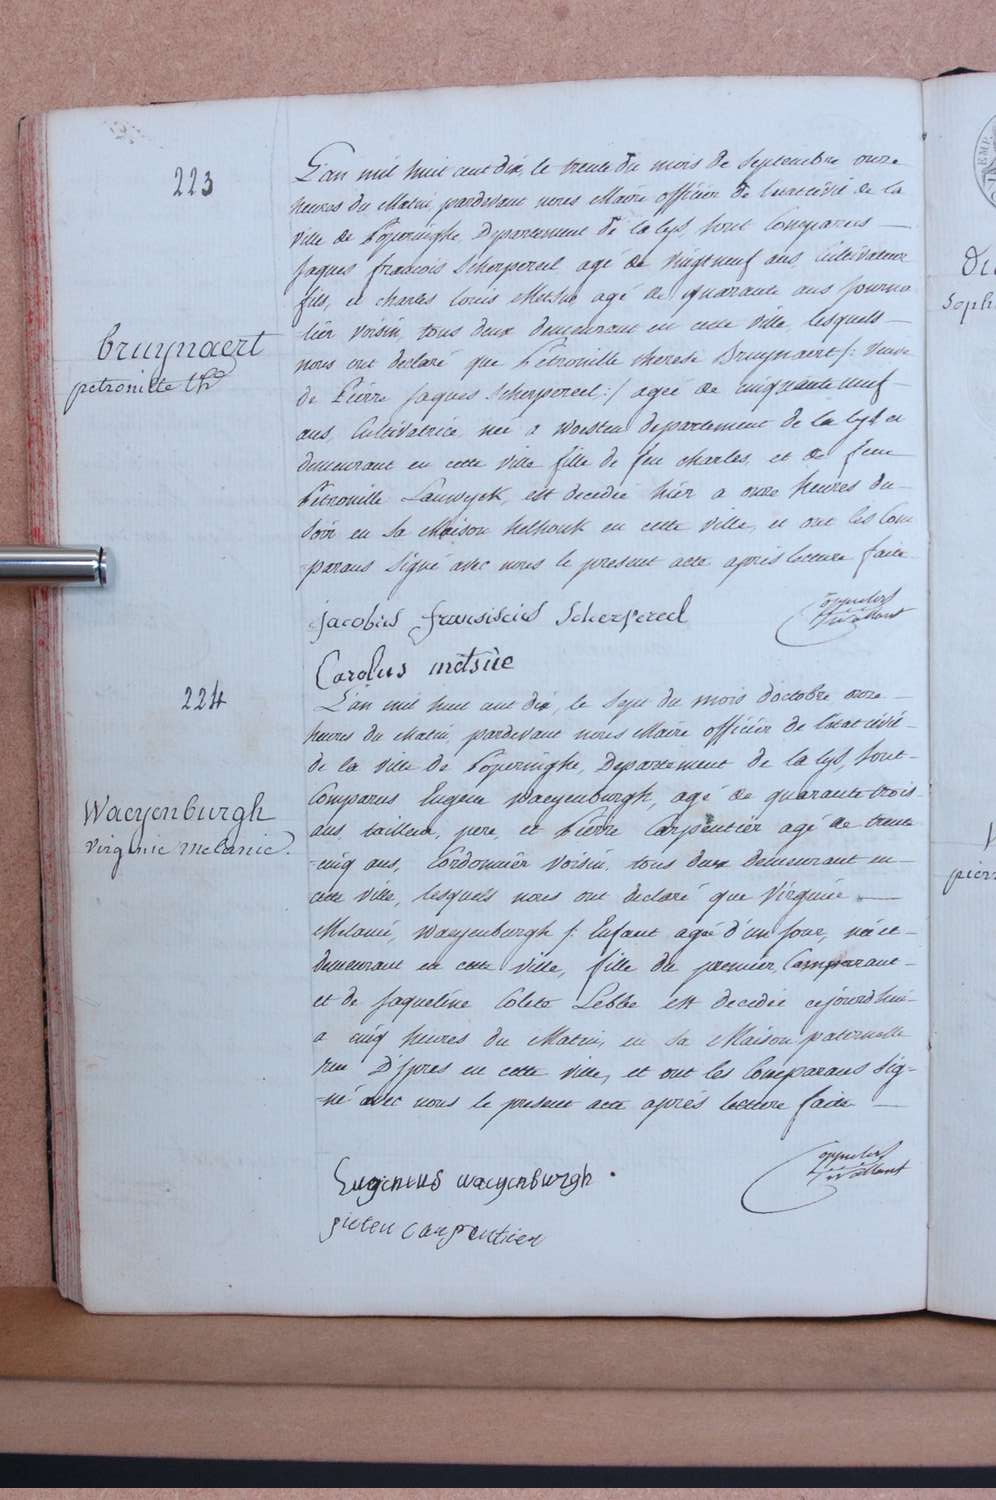 223
L'an mil huit cent dix, le trente du mois de Septembre onze
heures du Matin, pardevant nous Maire officier de l'etat civil de la
ville de Poperinghe, Departement de la Lys, sont Comparus —
Jaques francois Scherpereel agé de vingt neuf ans, Cultivateur
fils, et charles Louis Metsue agé de quarante ans journa
lier voisin, tous deux demeurant en cette ville, lesquels —
nous ont declaré que Petronille therese Bruynaert /: Veuve
de Pierre Jaques Scherpereel :/ agée de cinquante neuf
ans, Cultivatrice, née a Woesten departement de la lys et
demeurant en cette ville fille de feu charles, et de feue
Petronille Lauwyck, est decedée hier a onze heures du
soir en sa Maison helhouk en cette ville, et ont les Com
parans signé avec nous le present acte après lecture faite
bruynaert
petronille th
jacobus fransiscus Scherpereel
Carolus metsue
224
L'an mil huit cent dix, le sept du mois d'octobre onze
heures du Matin, pardevant nous Maire officier de l'etat civil
de la ville de Poperinghe, Departement de la lys, sont
Comparus Eugene Waeyenburgh, agé de quarante trois
ans, tailleur, pere, et Pierre Carpentier agé de trente
cinq ans, Cordonnier voisin, tous deux demeurant en
cette ville, lesquels nous ont declaré que Virginie —
Melanie, Waeyenburgh /: Enfant agé d'un jour, née et
demeurant en cette ville, fille du premier Comparant
et de Jaqueline Colete Lebbe est decedée cejourd'hui
a cinq heures du Matin, en sa Maison paternelle
rue D'Ypres en cette ville, et ont les Comparans sig-
=né avec nous le present acte après lecture faite —
Waeyenburgh
Virginie Melanie.
Eugenius waeyenburgh
pieter carpentier